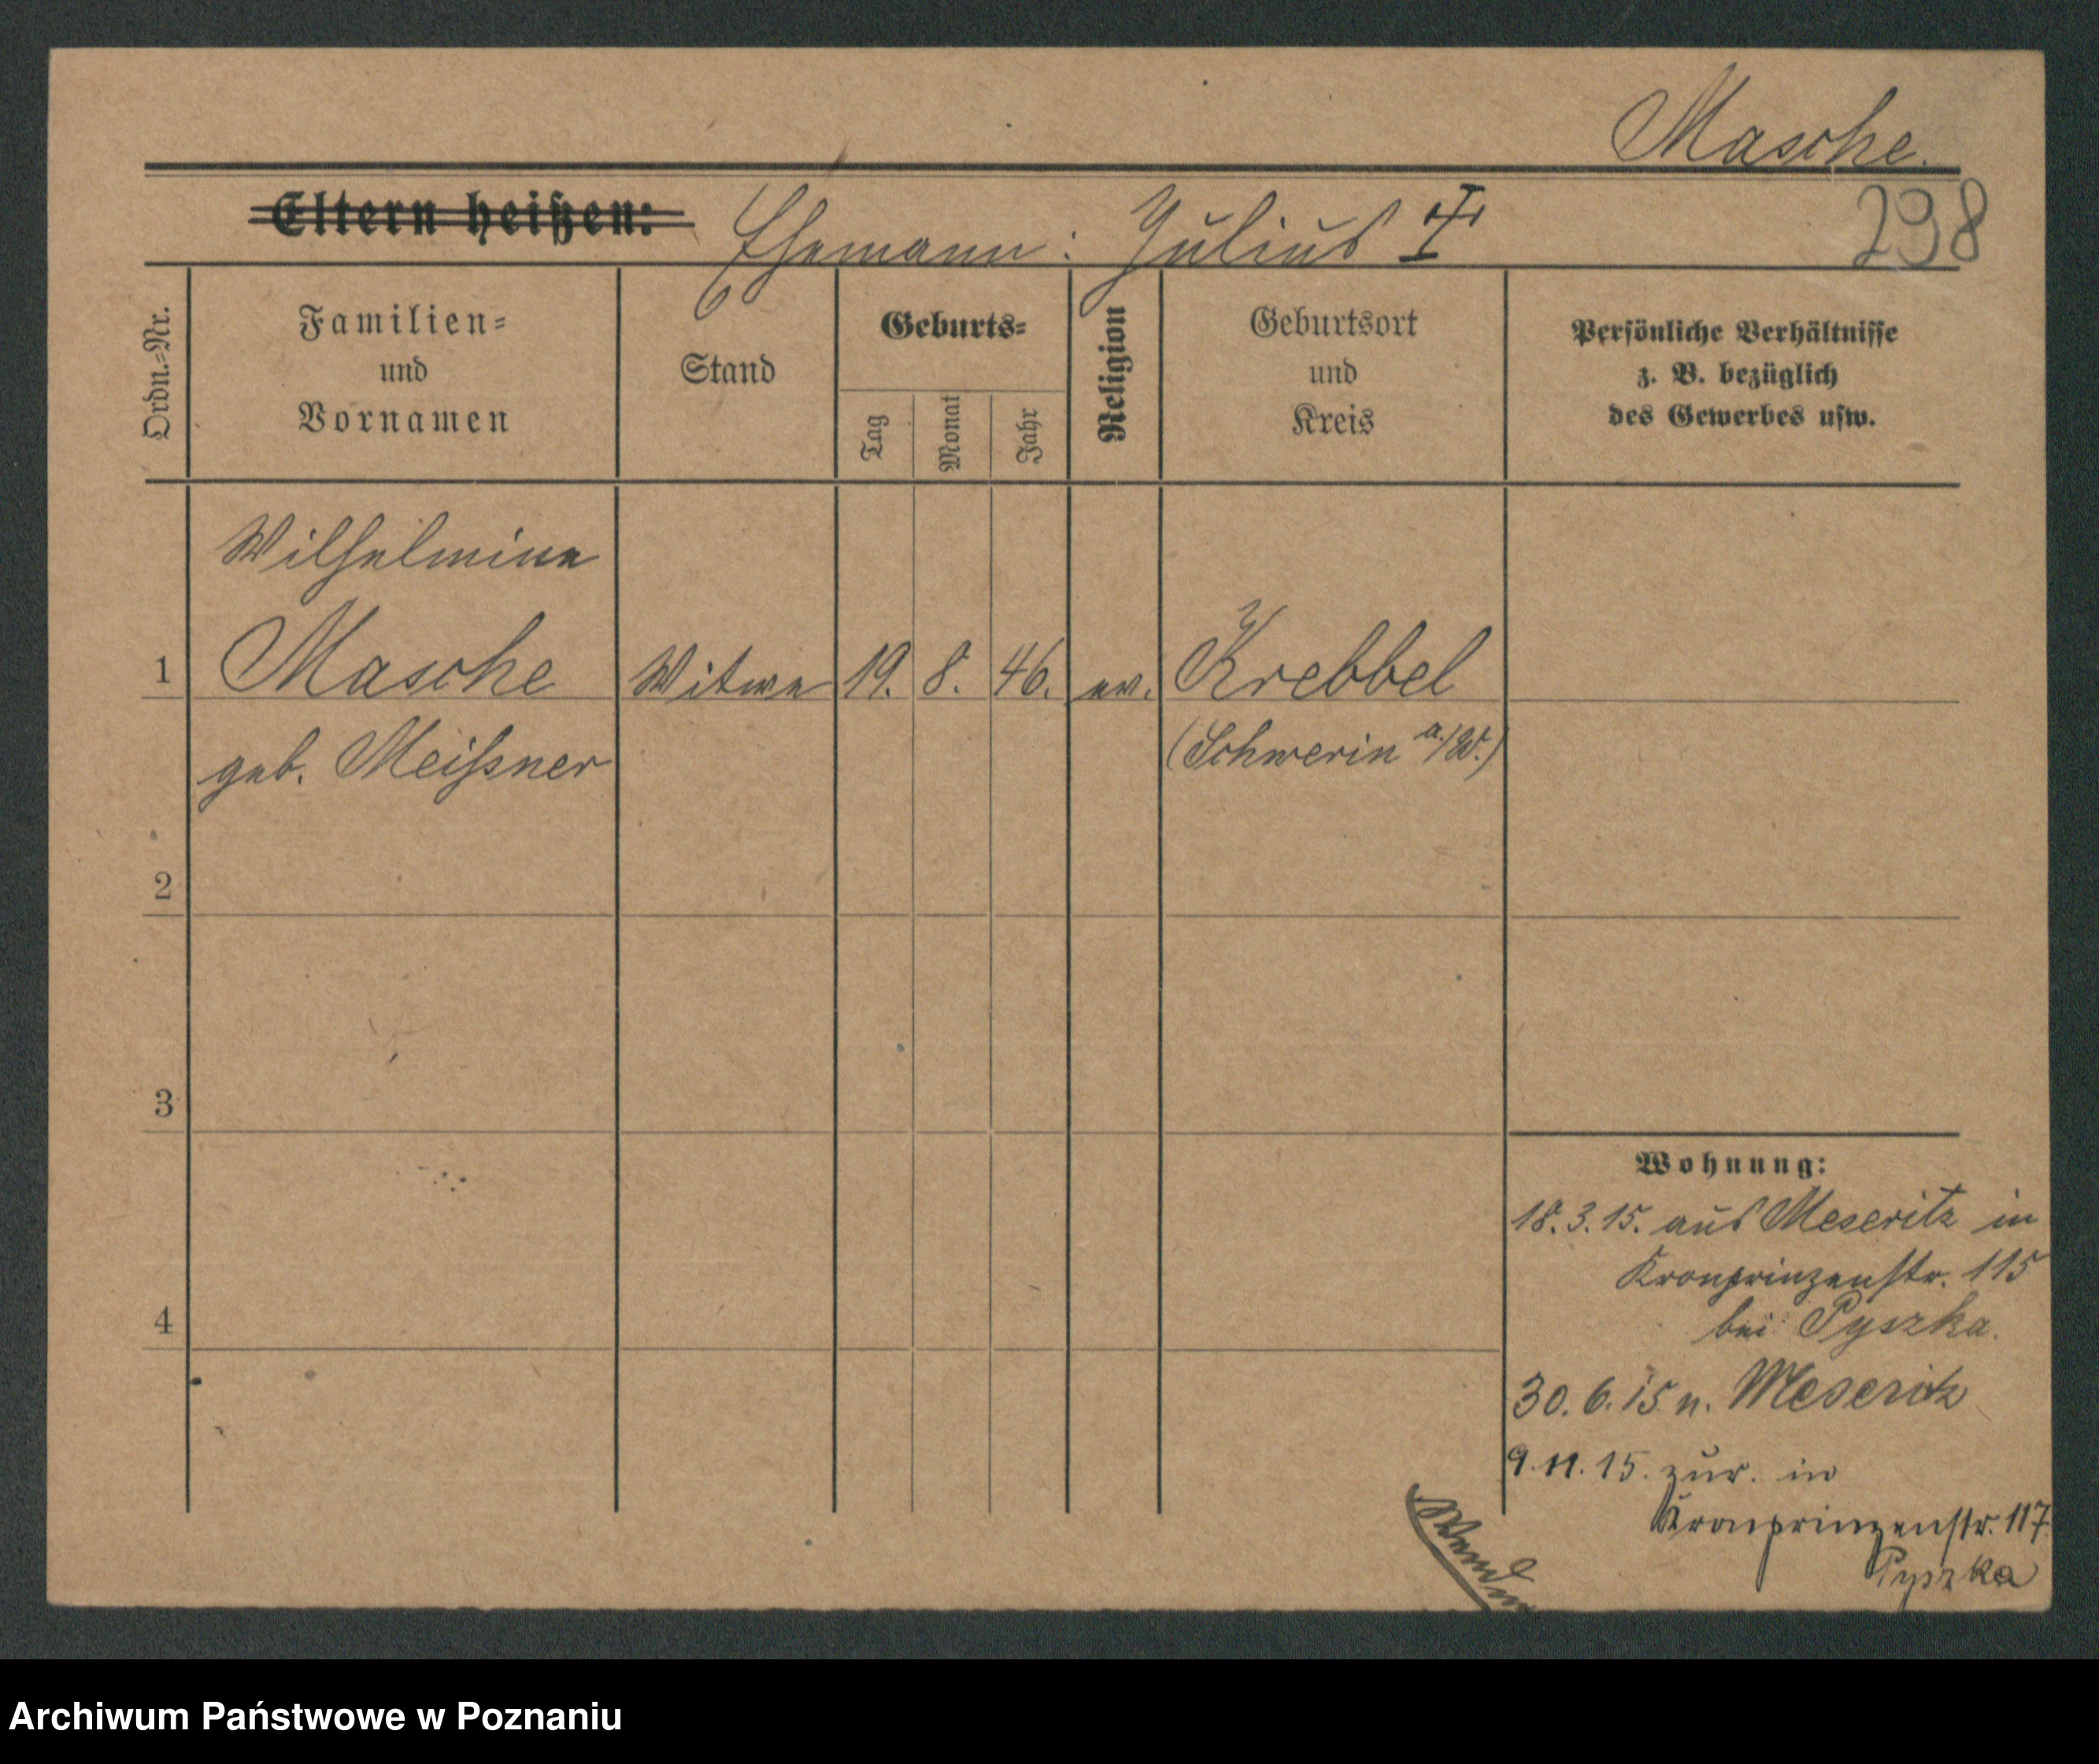 Masche.
Eltern heißen: Ehemann: Julius †
298
Ordn.-Nr.
Familien-
und
Vornamen
Stand
Geburts-
Tag
Monat
Jahr
Religion
Geburtsort
und
Kreis
Persönliche Verhältnisse
z. B. bezüglich
des Gewerbes usw.
Wilhelmine
1 Masche Witwe 19. 8. 46. ev. Krebbel
geb. Meißner (Schwerin a./W.)
2
3
4
Wohnung:
18.3.15. aus Meseritz in
Kronprinzenstr. 115
bei Pyszka.
30.6.15 n. Meseritz
9.11.15. zur. in
Kronprinzenstr. 117
Pyszka
Wenden
Archiwum Państwowe w Poznaniu